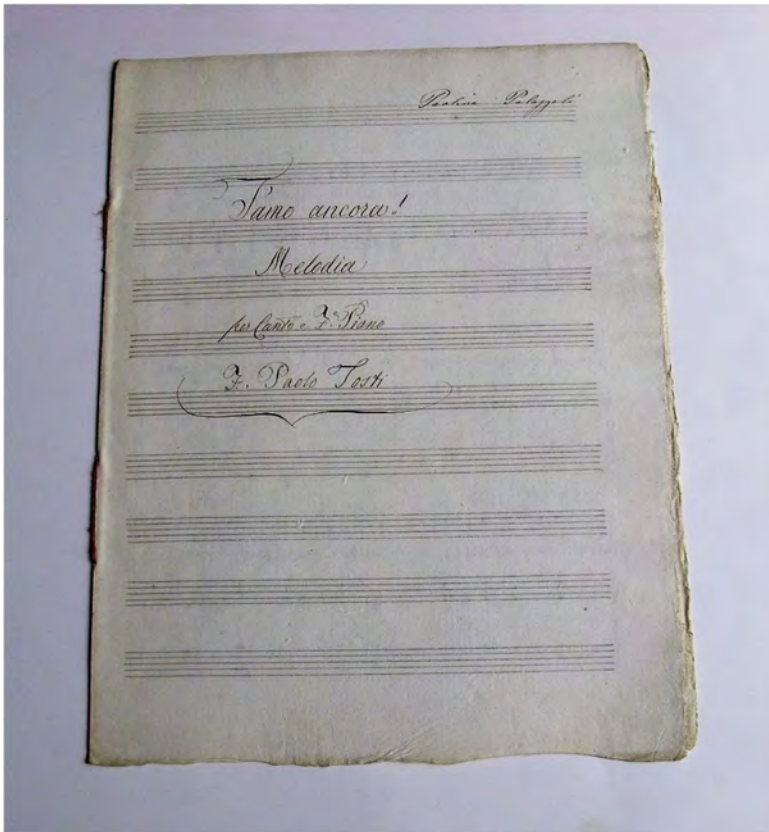 Paolina Palazzoli
T'amo ancora!
Melodia
per Canto e F.e Piano
F. Paolo Tosti